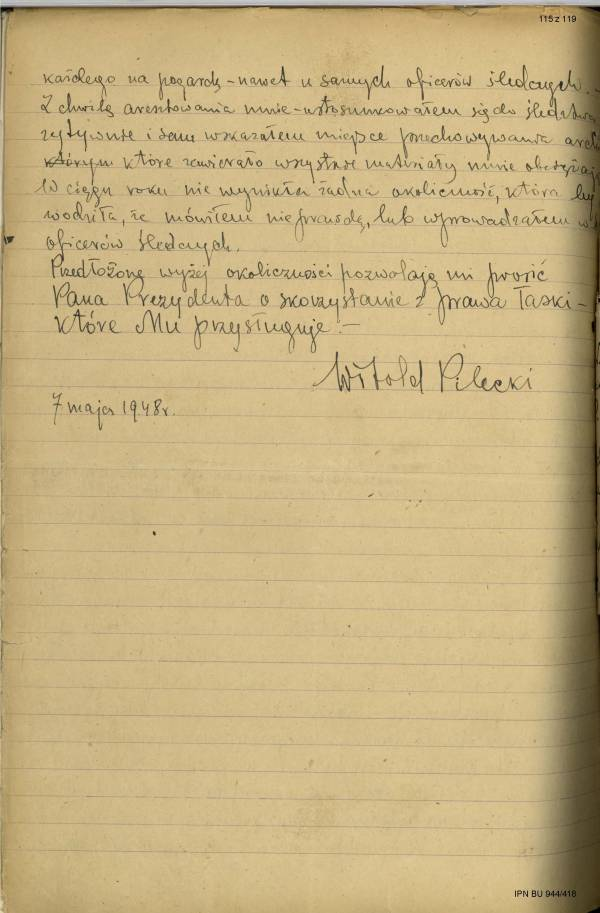 115 z 119
każdego na pogardę – nawet u samych oficerów śledczych. –
Z chwilą aresztowania mnie – ustosunkowałem się do śledztwa
pozytywnie i sam wskazałem miejsce przechowywania
które zawierało wszystkie materiały mnie
W ciągu roku nie wynikła żadna okoliczność, która by
wodziła, że mówiłem nieprawdę, lub wprowadzałem w
oficerów śledczych.
Przedłożone wyżej okoliczności pozwalają mi prosić
Pana Prezydenta o skorzystanie z prawa Łaski –
które Mu przysługuje. –
Witold Pilecki
7 maja 1948 r.
IPN BU 944/418